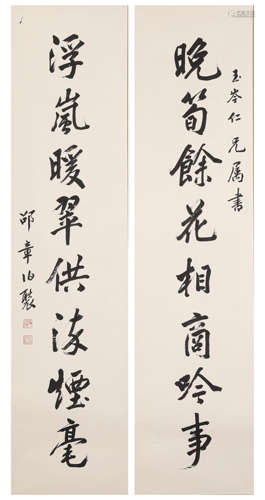 玉岑仁兄属書
晚筍餘花相商吟事
浮嵐暖翠供染煙毫
邵章伯褧